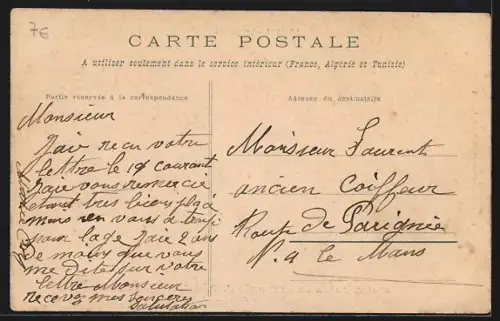 7€
CARTE POSTALE
A utiliser seulement dans le service intérieur (France, Algérie et Tunisie)
Partie réservée à la correspondance
Adresse du destinataire
Monsieur
J'ai recu votre
lettre le 19 courant
J'aie vous remercie
etant tres bien plasé
mais en vous a
pour lage J'aie 2 ans
De moins que vous
me Dites sur votre
lettre Monsieur
recevez mes sinceres
Salutation
Monsieur Laurent
ancien Coiffeur
Route De Parignée
N. 4 le Mans